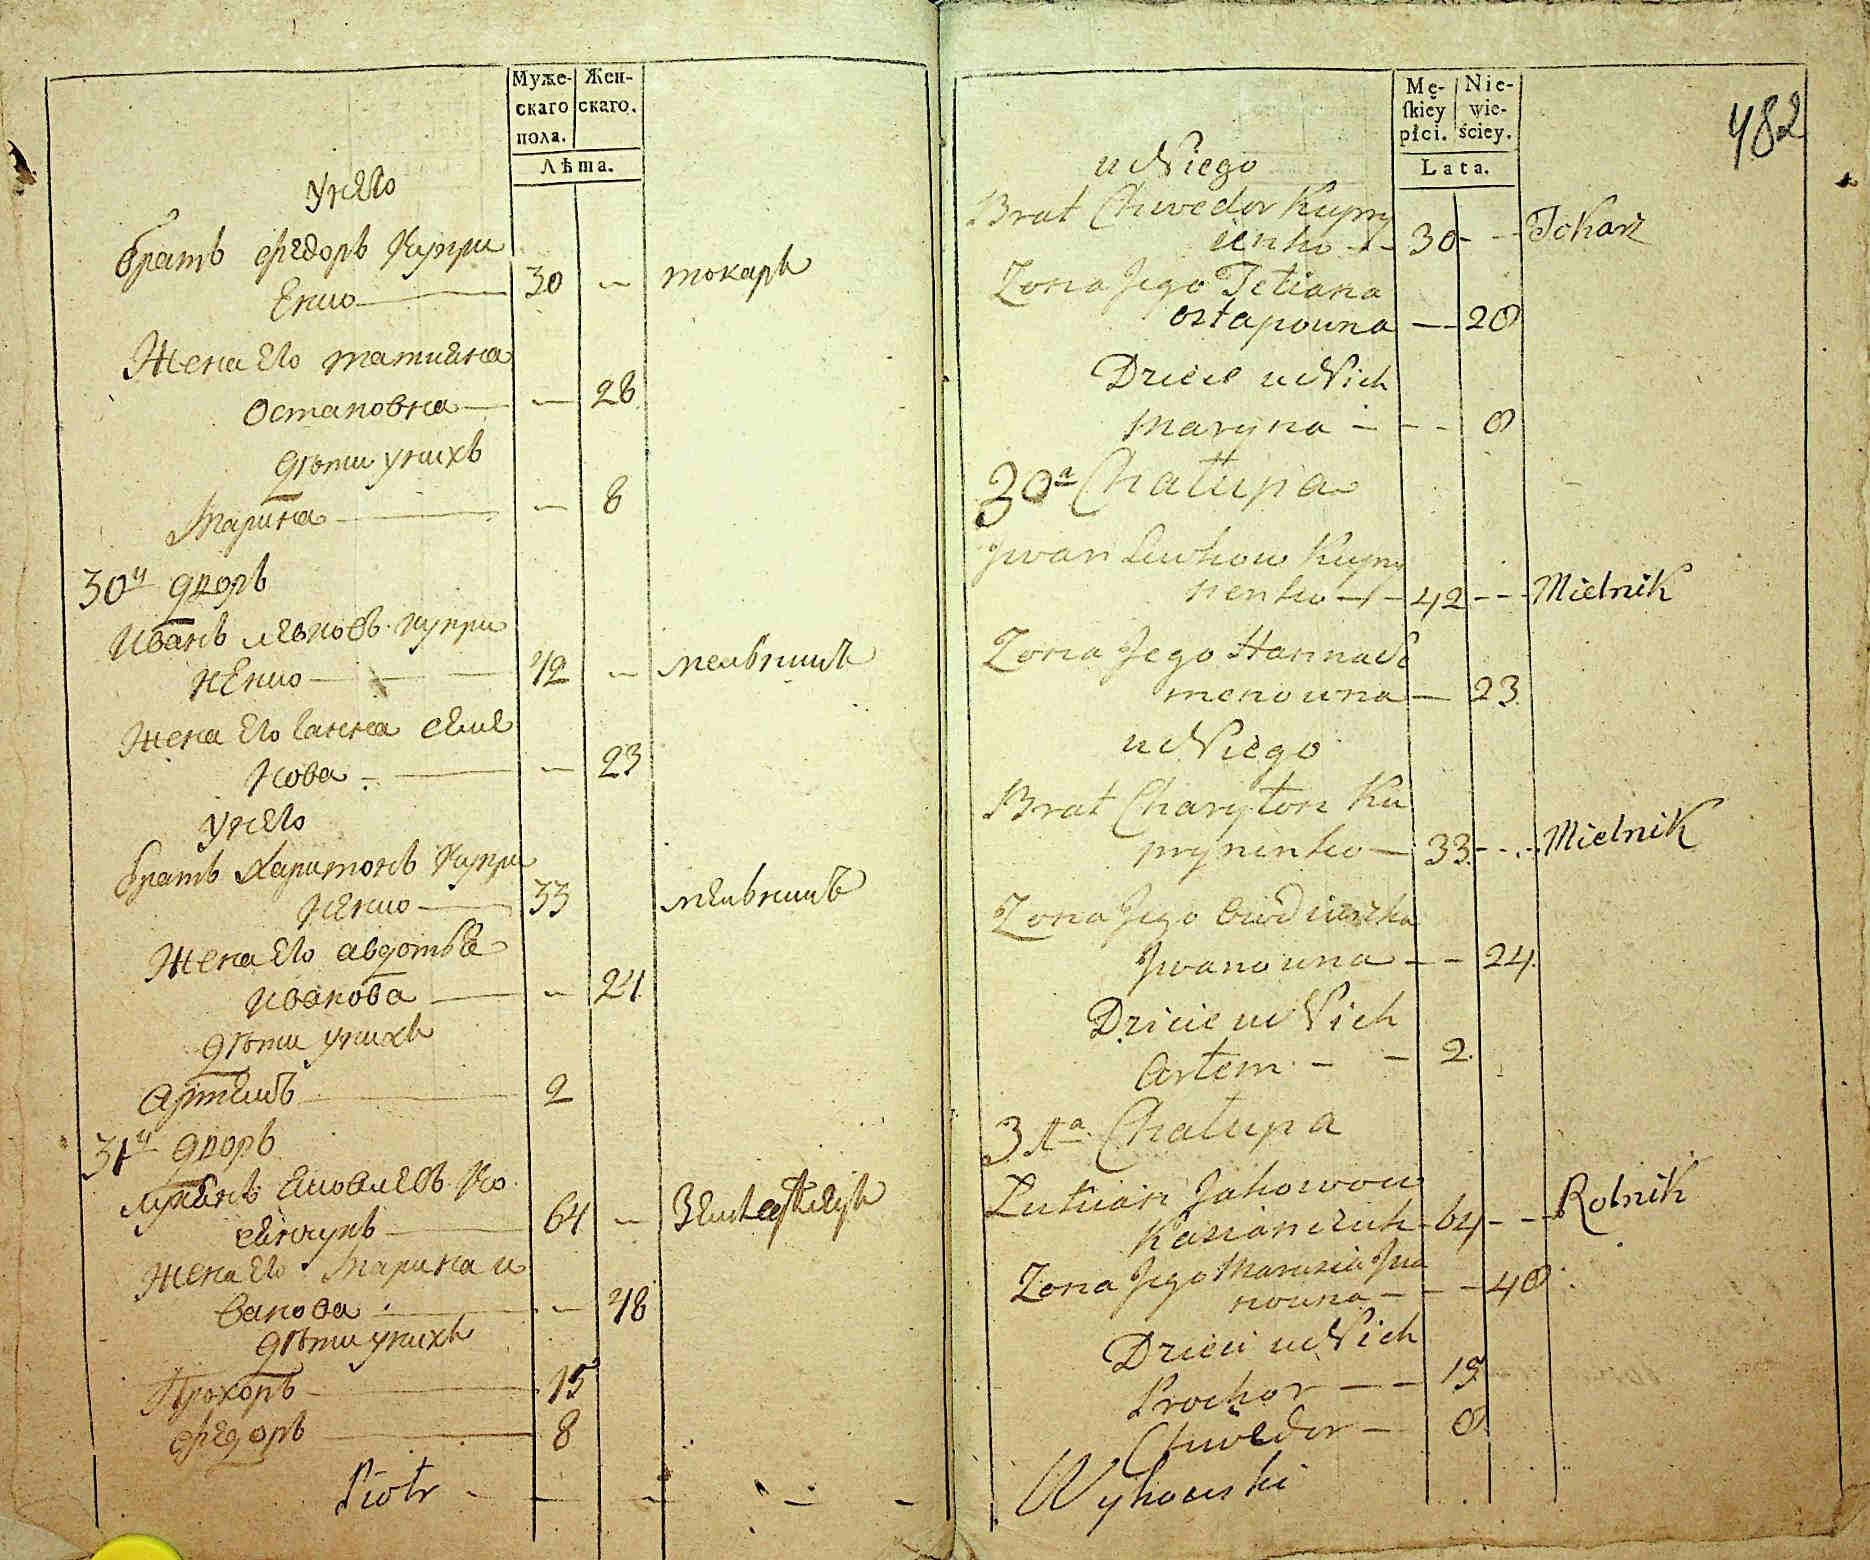 Муже-
скаго
пола.
Жен-
скаго.
Лѣта.
У него
братъ федоръ Купри
Енко 30 — токарь
Жена Его татияна
Остаповна — 28
дѣти у нихъ
Марина — 8
30й дворъ
Иванъ левковъ Купри
нЕнко 42 — мельникъ
жена Его ганна семе
нова — 23
У него
братъ Харитонъ Купри
нЕнко 33 мельникъ
Жена Его авдотья
Иванова — 24
дѣти у нихъ
артемъ 2
31й дворъ
лукянъ яковлевъ Ка
сянчукъ 64 —
жена Его Марина и
ванова — 48
дѣти у нихъ
Прохоръ 15
федоръ 8
Piotr
482
Mę-
ſkiéy
płci.
Nie-
wie-
ściey.
Lata.
u Niego
Brat Chwedor Kupry
ienko 30 Tokarz
Zona Jego Tetiana
ostapowna 28
Dziecie u Nich
Maryna 8
30a Chałupa
Jwan Lewkow Kupry
nenko 42 Mielnik
Zona Jego Hanna Se
menowna 23
u Niego
Brat Charyton Ku
prynenko 33 Mielnik
Zona Jego Owdiuszka
Jwanowna 24
Dziecie u Nich
Artem 2
31a Chałupa
Lukian Jakowow
Kasianczuk 64 Rolnik
Zona Jego Marusia Jwa
nowna 48
Dzieci u Nich
Prochor 15
Chwedor 8
Wyhowski